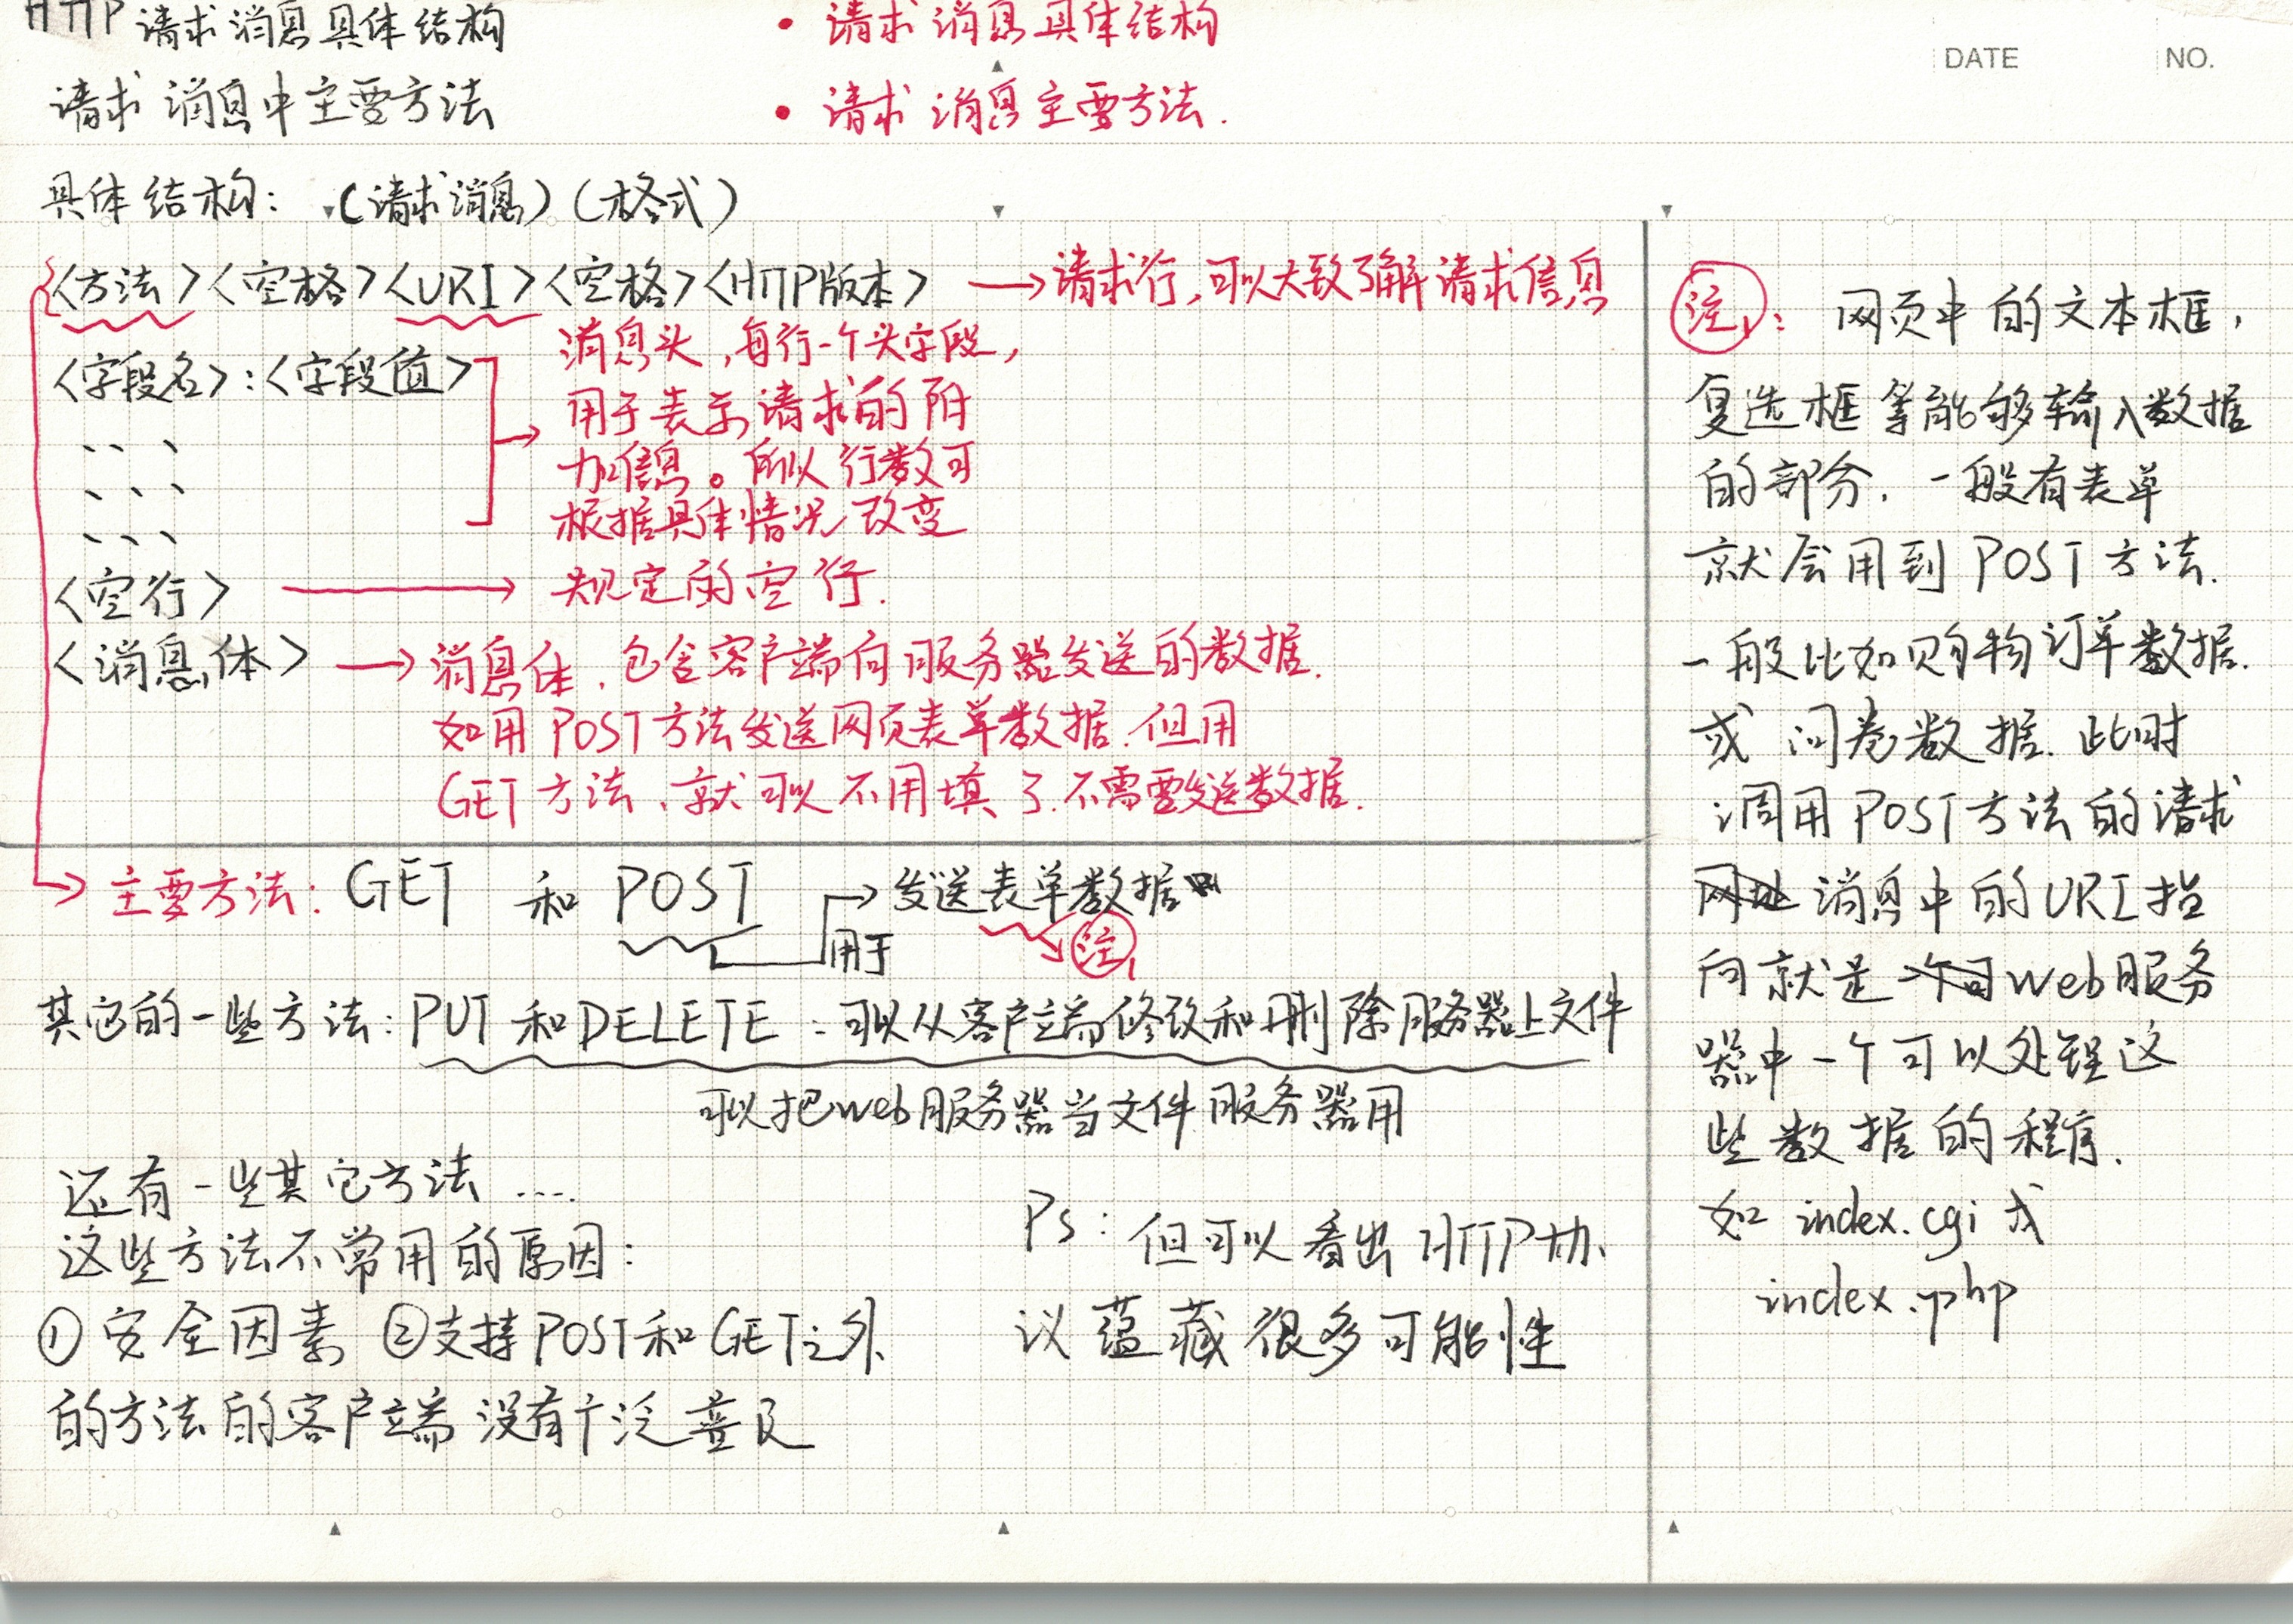 HTTP请求消息具体结构
请求消息中主要方法
• 请求消息具体结构
• 请求消息主要方法.
DATE NO.
具体结构: (请求消息)(格式)
<方法><空格><URI><空格><HTTP版本> → 请求行,可以大致了解请求信息
<字段名>:<字段值>
、、、
、、、
、、、
消息头,每行一个头字段,
用于表示请求的附
加信息。所以行数可
根据具体情况改变
<空行> → 规定的空行.
<消息体> → 消息体,包含客户端向服务器发送的数据.
如用POST方法发送网页表单数据.但用
GET方法、就可以不用填了.不需要发送数据.
→ 主要方法: GET 和 POST → 发送表单数据
用于 注1
其它的一些方法: PUT 和DELETE : 可以从客户端修改和删除服务器上文件
可以把web服务器当文件服务器用
还有一些其它方法 ....
这些方法不常用的原因:
①安全因素 ②支持POST和GET之外
的方法的客户端没有广泛普及
Ps: 但可以看出HTTP协
议蕴藏很多可能性
注1: 网页中的文本框,
复选框等能够输入数据
的部分. 一般有表单
就会用到POST方法.
一般比如购物订单数据.
或问卷数据. 此时
调用POST方法的请求
网址消息中的URI指
向就是一个可web服务
器中一个可以处理这
些数据的程序.
如 index.cgi 或
index.php